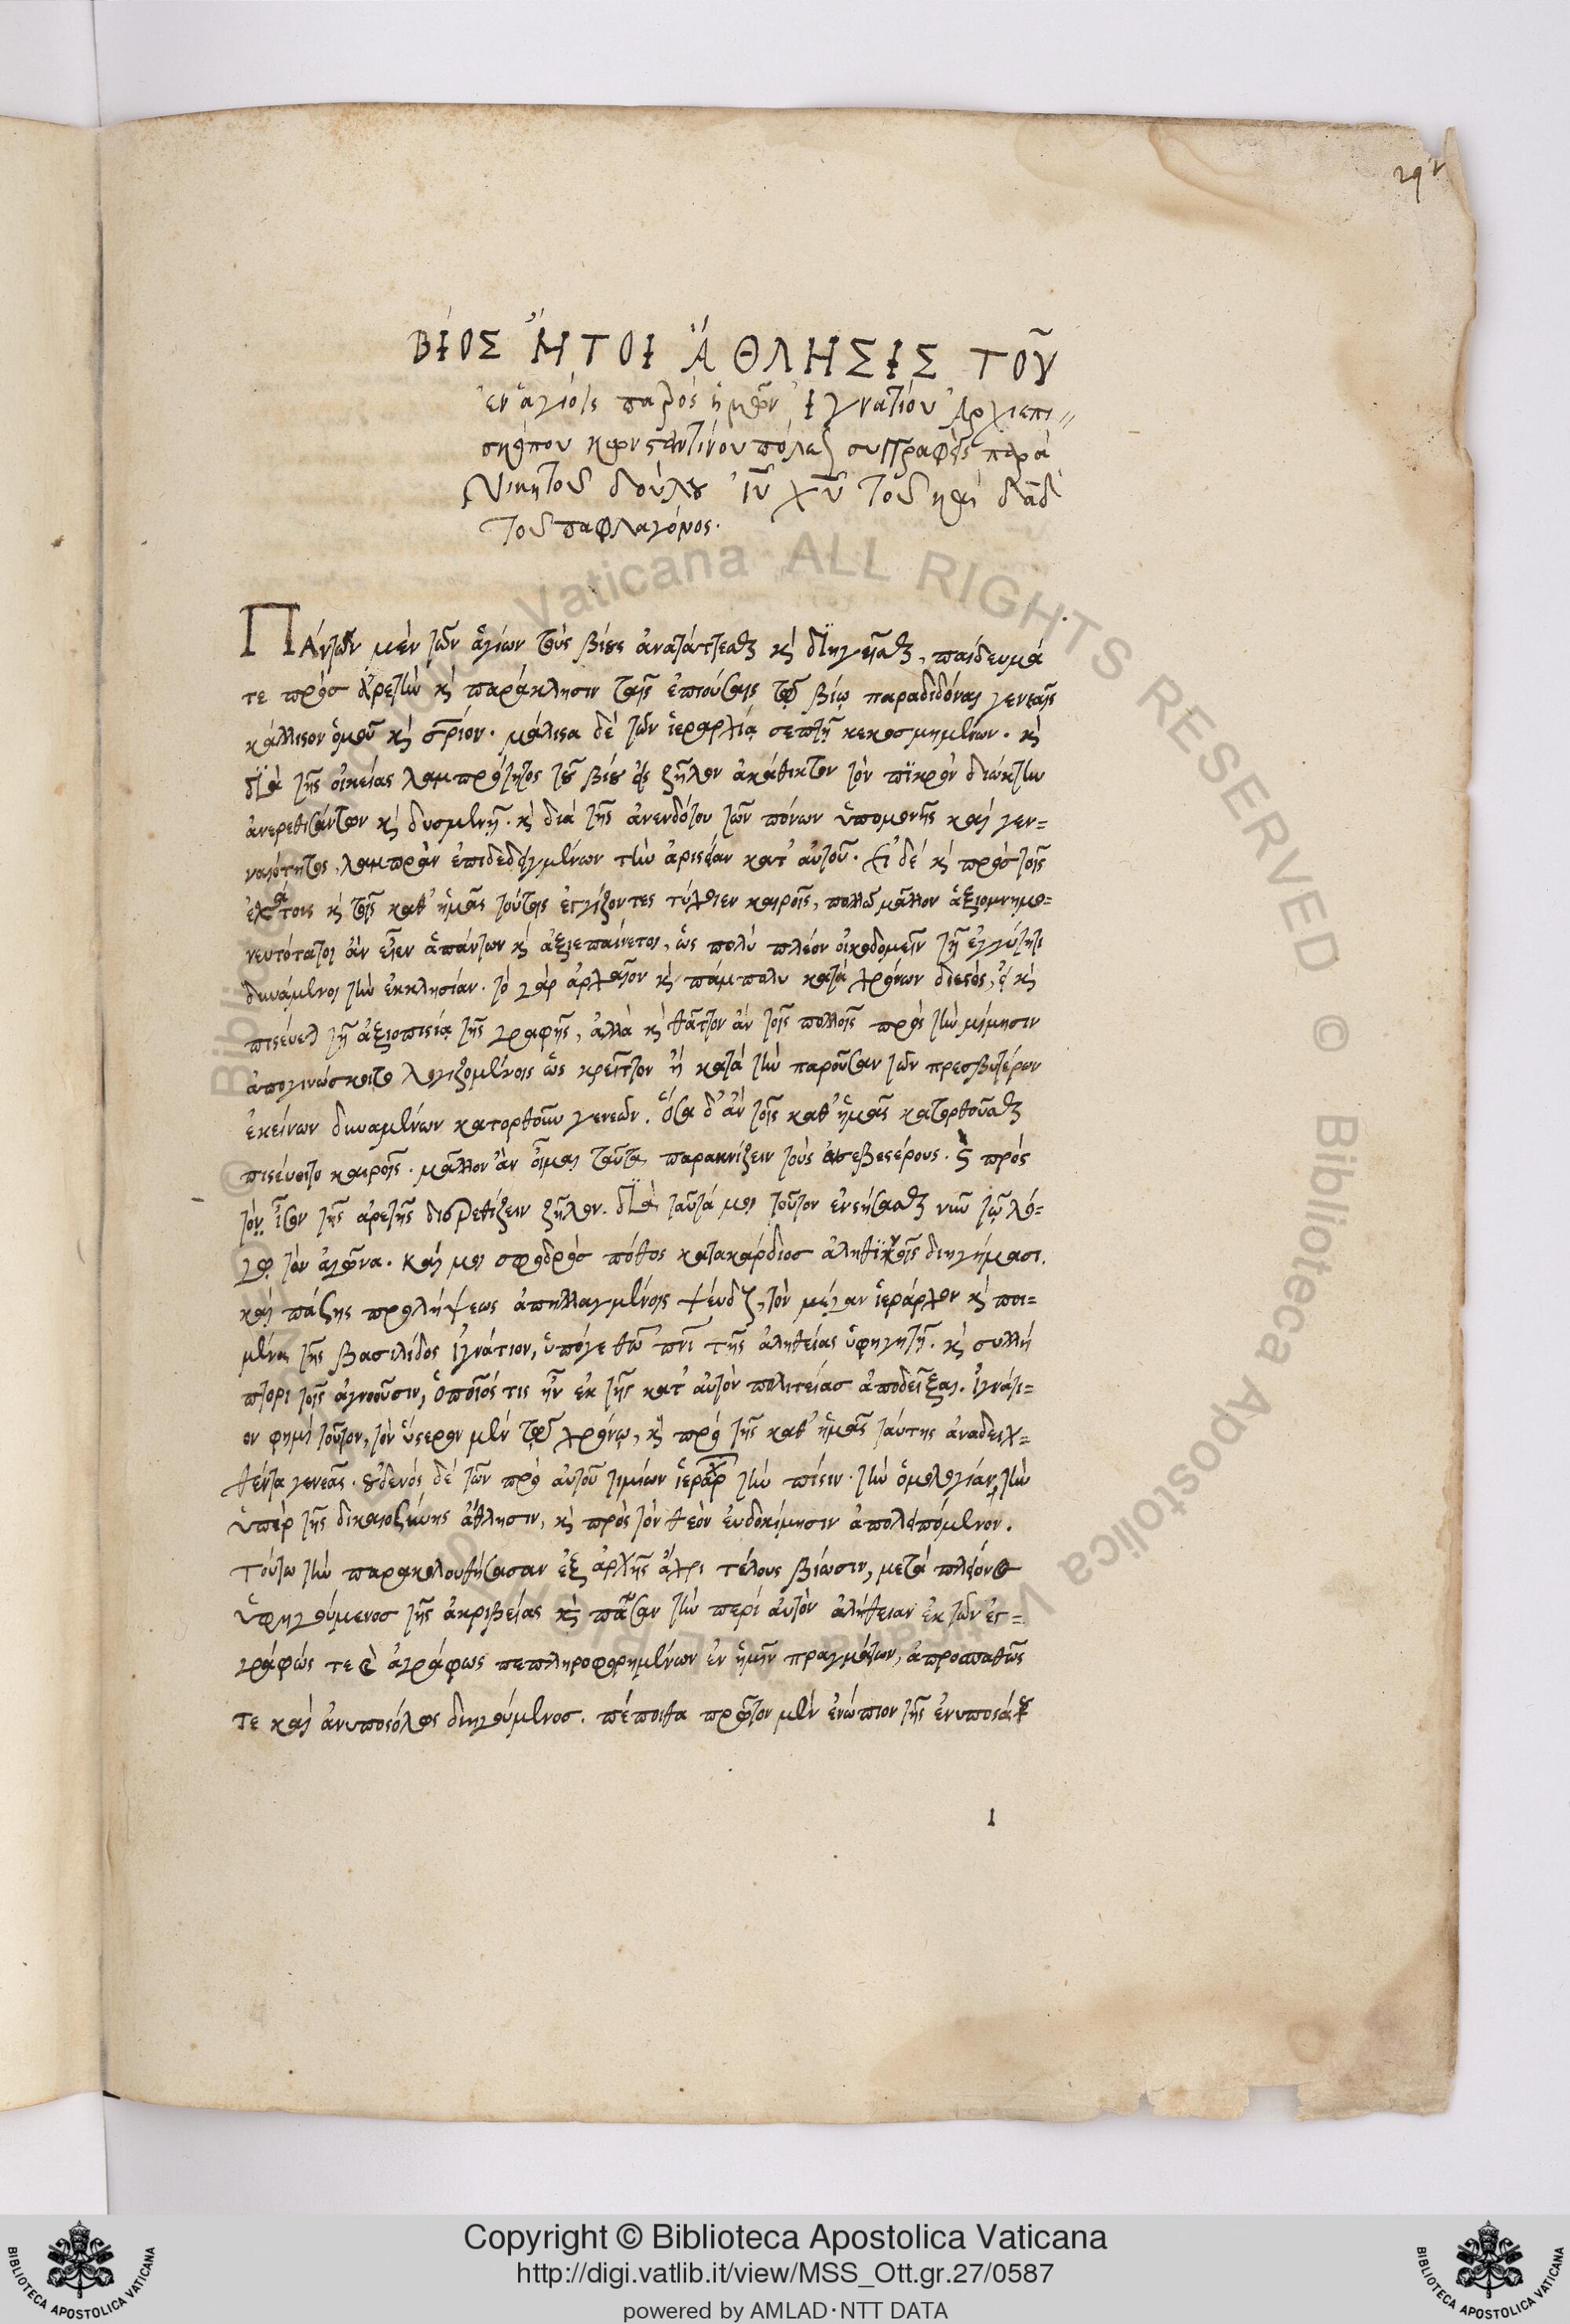 292
ΒΊΟΣ ἬΤΟΙ ἌΘΛΗΣΙΣ ΤΟΥ͂
ἐν ἁγίοις πατρὸς ἡμῶν Ἰγνατίου Ἀρχιεπι=
σκόπου κωνσταντίνου πόλεως συγγραφεὶς παρὰ
Νικήτου δούλου ἰῦ χῦ τοῦ καὶ δᾱδ
τοῦ παφλαγόνος.
Πάντων μὲν τῶν ἁγίων τοὺς βίους ἀνατάττεσθαι καὶ διηγεῖσθαι, παίδευμά
τε πρὸσ ἀρετὴν καὶ παράκλησιν ταῖς ἐπιούσαις τῷ βίῳ παραδιδόναι γενεαῖς
κάλλιστον ὁμοῦ καὶ σρίον. μάλιστα δὲ τῶν ἱεραρχίᾳ σεπτῇ κεκοσμημένων. καὶ
διὰ τῆς οἰκείας λαμπρότητος τοῦ βίου εἰς ζῆλον ἀκάθεκτον τὸν πικρὸν διώκτην
ἀνερεθισάντων καὶ δυσμενῆ. καὶ διὰ τῆς ἀνενδότου τῶν πόνων ὑπομονῆς καὶ γεν=
ναιότητος, λαμπρὰν ἐπιδεδειγμένων τὴν ἀριστείαν κατ' αὐτοῦ. Εἰ δὲ καὶ πρὸσ τοῖς
ἐχάτοις καὶ τοῖς καθ' ἡμᾶς τούτοις ἐγγίζοντες τύχοιεν καιροῖς, πολλῷ μᾶλλον ἀξιομνημο=
νευτότατοι ἂν εἶεν ἁπάντων καὶ ἀξιεπαίνετοι, ὡς πολὺ πλέον οἰκοδομεῖν τῇ ἐγγύτητι
δυνάμενοι τὴν ἐκκλησίαν. τὸ γὰρ ἀρχαῖον καὶ πάμπολυ κατὰ χρόνων
τῇ ἀξιοπιστίᾳ τῆς γραφῆς, ἀλλὰ καὶ θᾶττον ἂν τοῖς πολλοῖς πρὸς τὴν μίμησιν
ἀπογινώσκοιτο λογιζομένοις ὡς κρεῖττον ἢ κατὰ τὴν παροῦσαν τῶν πρεσβυτέρων
ἐκείνων δυναμένων κατορθοῦν γενεῶν. Ὅσα δ' ἂν τοῖς καθ' ἡμᾶς κατορθοῦσθαι
πιστεύοιτο καιροῖς. μᾶλλον ἂν οἶμαι ταῦτα παρακνίζειν τοὺς . καὶ πρὸς
τὸν ἴσον τῆς ἀρετῆς διερεθίζειν ζῆλον. διὰ ταῦτά μοι τοῦτον ἐνστήσασθαι νῦν τῷ λό=
γῳ τὸν ἀγῶνα. καί μοι σφοδρὸσ πόθος κατακάρδιοσ ἀληθικοῖς διηγήμασι.
καὶ πάσης προλήψεως ἀπηλλαγμένοις ψεύδους, τὸν μέγαν ἱεράρχον καὶ ποι=
μένα τῆς βασιλίδος ἰγνάτιον, ὑπόγε θῶ πνὶ τῆς ἀληθείας ὑφηγητῇ. καὶ συλλή
πτορι τοῖς ἀγνοοῦσιν, ὁποῖός τις ἦν ἐκ τῆς κατ' αὐτὸν πολιτείασ ἀποδεῖξαι. Ἰγνάτι=
ον φημὶ τοῦτον, τὸν ὕστερον μὲν τῷ χρόνῳ, καὶ πρὸ τῆς καθ' ἡμᾶς ταύτης ἀναδειχ=
θέντα γενεᾶς. οὐδενὸς δὲ τῶν πρὸ αὐτοῦ τιμίων ἱεραρχ τὴν πίστιν. τὴν ὁμολογίαν, τὴν
ὑπὲρ τῆς δικαιοσύνης ἄθλησιν, καὶ πρὸς τὸν θεὸν εὐδοκίμησιν ἀπολειπόμενον.
Τούτω τὴν παρακολουθήσασαν ἐξ ἀρχῆς ἄχρι τέλους βίωσιν, μετὰ πλείονος
ὑφηγούμενοσ τῆς ἀκριβείας καὶ πᾶσαν τὴν περὶ αὐτὸν ἀλήθειαν ἐκ τῶν ἐγ=
γράφώς τε καὶ ἀγράφως πεπληροφορημένων ἐν ἡμῖν πραγμάτων, ἀπροσπαθῶς
τε καὶ ἀνυποστόλως διηγούμενοσ. πέποιθα πρῶτον μὲν ἐνώπιον τῆς ἐνυποστάτου
1
Copyright © Biblioteca Apostolica Vaticana
http://digi.vatlib.it/view/MSS_Ott.gr.27/0587
powered by AMLAD·NTT DATA